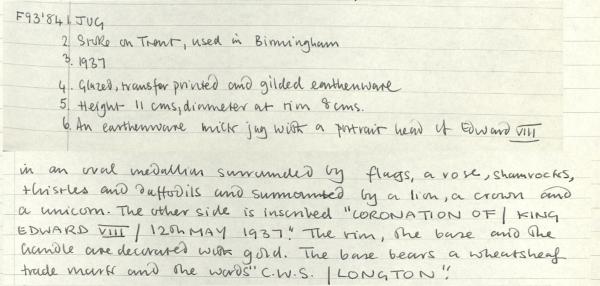 F93'84 1. JUG
2. Stoke on Trent, used in Birmingham
3. 1937
4. Glazed, transfer printed and gilded earthenware
5. Height 11 cms, diameter at rim 8 cms.
6. An earthenware milk jug with a portrait head of Edward VIII
in an oval medallion surrounded by flags, a rose, shamrocks,
thistles and daffodils and surmounted by a lion, a crown and
a unicorn. The other side is inscribed "CORONATION OF / KING
EDWARD VIII / 12th MAY 1937." The rim, the base and the
handle are decorated with gold. The base bears a wheatsheaf
trade mark and the words "C.W.S. / LONGTON".